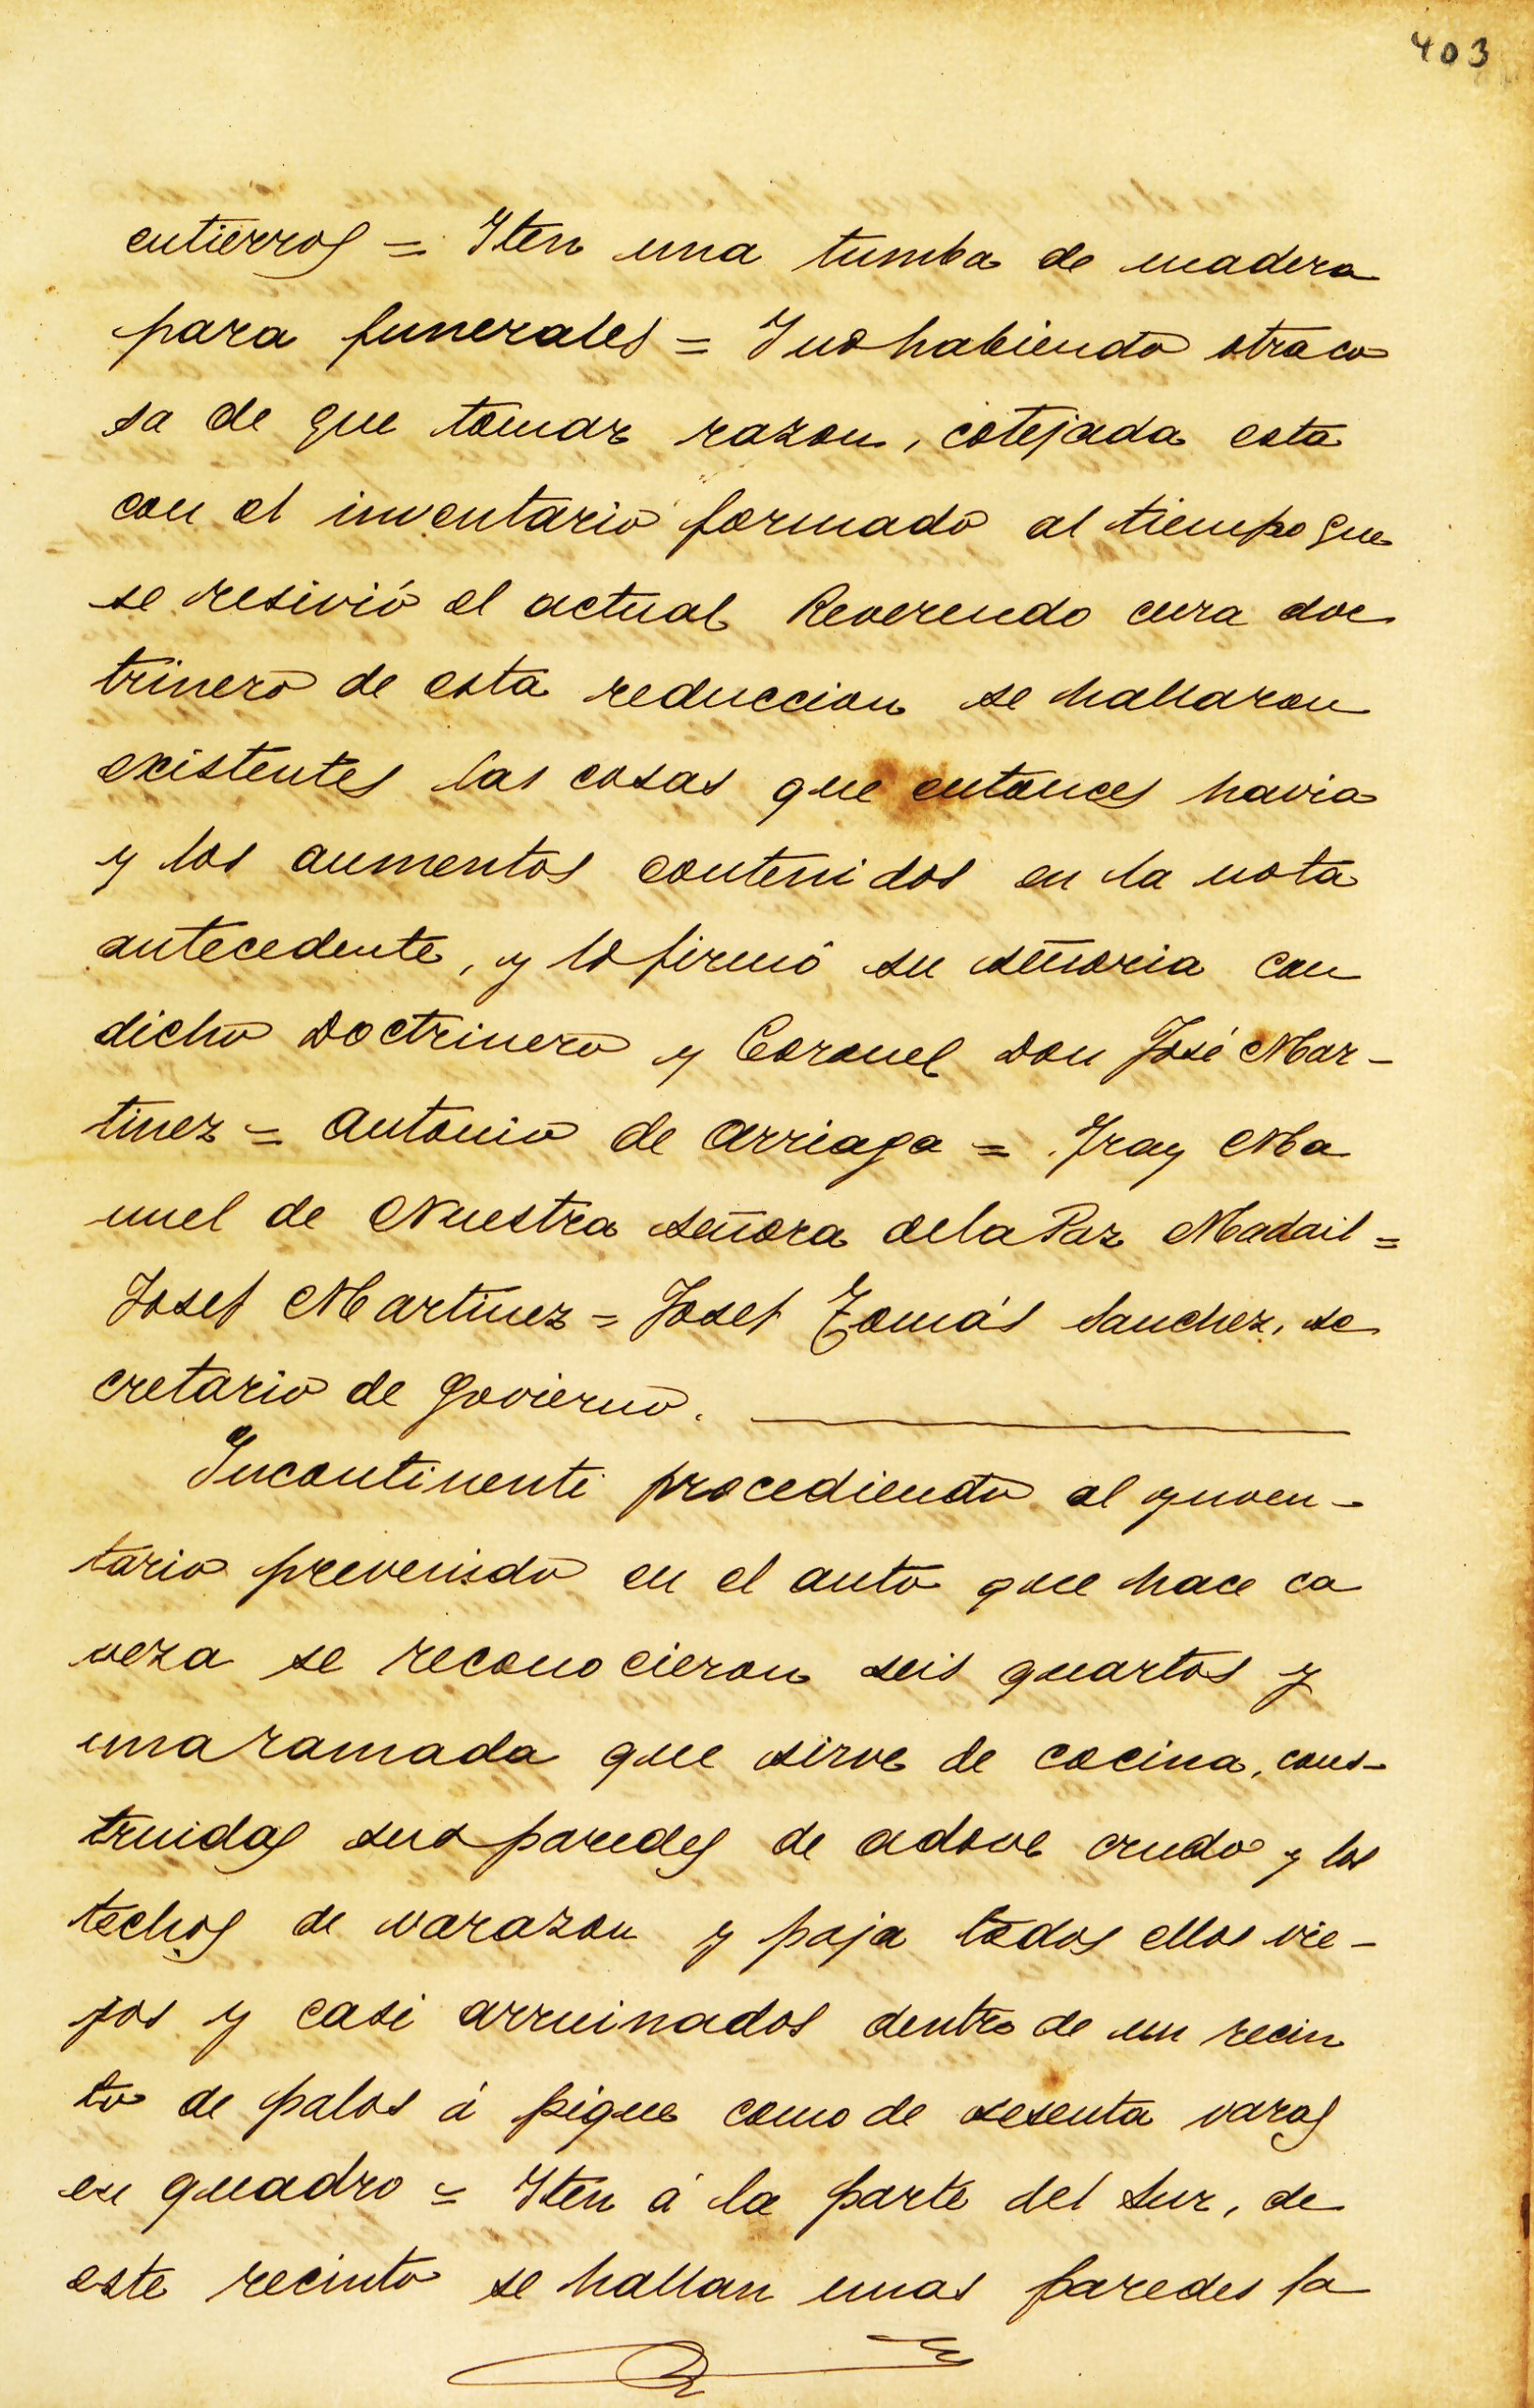 403
entierros = Iten una tumba de madera
para funerales = I no habiendo otra co
sa de que tomar razon, cotejada esta
con el inventario formado al tiempo que
se resivió el actual Reverendo cura doc
trinero de esta reduccion se hallaron
existentes las cosas que entonces havia
y los aumentos contenidos en la nota
antecedente, y lo firmó su señoria con
dicho Doctrinero y Coronel Don José Mar-
tinez = Antonio de Arriaga = Fray Ma
nuel de Nuestra señora de la Paz Madail =
Josef Martinez = Josef Tomás Sanchez, se
cretario de Govierno.
Incontinenti procediendo al ynven-
tario prevenido en el auto que hace ca
veza se reconocieron seis quartos y
una ramada que sirve de cocina, cons-
truidas sus paredes de adove crudo y los
techos de varazon y paja todos ellos vie-
jos y casi arruinados dentro de un recin
to de palos á pique como de sesenta varas
en quadro = Iten á la parte del Sur, de
este recinto se hallan unas paredes fa